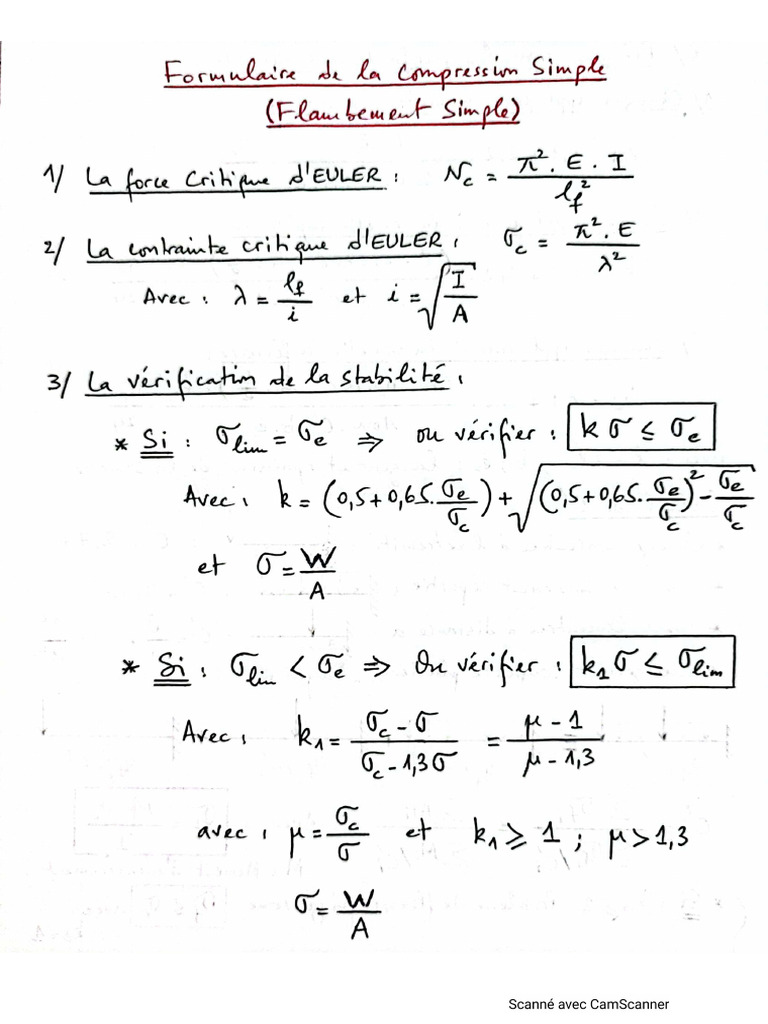 Formulaire de la compression Simple
(Flambement Simple)
1/ La force critique d'EULER : N_c = π². E . I / l_f²
2/ La contrainte critique d'EULER : σ_c = π². E / λ²
Avec : λ = l_f / i et i = √(I / A)
3/ La vérification de la stabilité :
* Si : σ_lim = σ_e ⇒ on vérifier : k σ ≤ σ_e
Avec : k = (0,5+0,65. σ_e / σ_c) + √((0,5+0,65. σ_e / σ_c)² - σ_e / σ_c)
et σ = W / A
* Si : σ_lim < σ_e ⇒ On vérifier : k_1 σ ≤ σ_lim
Avec : k_1 = (σ_c - σ) / (σ_c - 1,3 σ) = (μ - 1) / (μ - 1,3)
avec : μ = σ_c / σ et k_1 ⩾ 1 ; μ > 1,3
σ = W / A
Scanné avec CamScanner